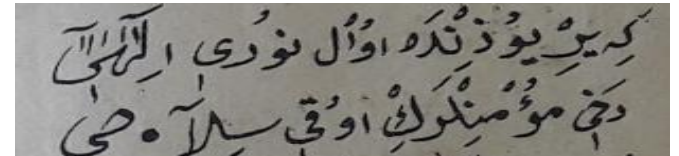 كه يِرْ يوُزِنْدَه اوُل نوُرى اِلَهْىٰ
دَخى مؤُمِنْلَرِكْ اوُقى سِلآحى